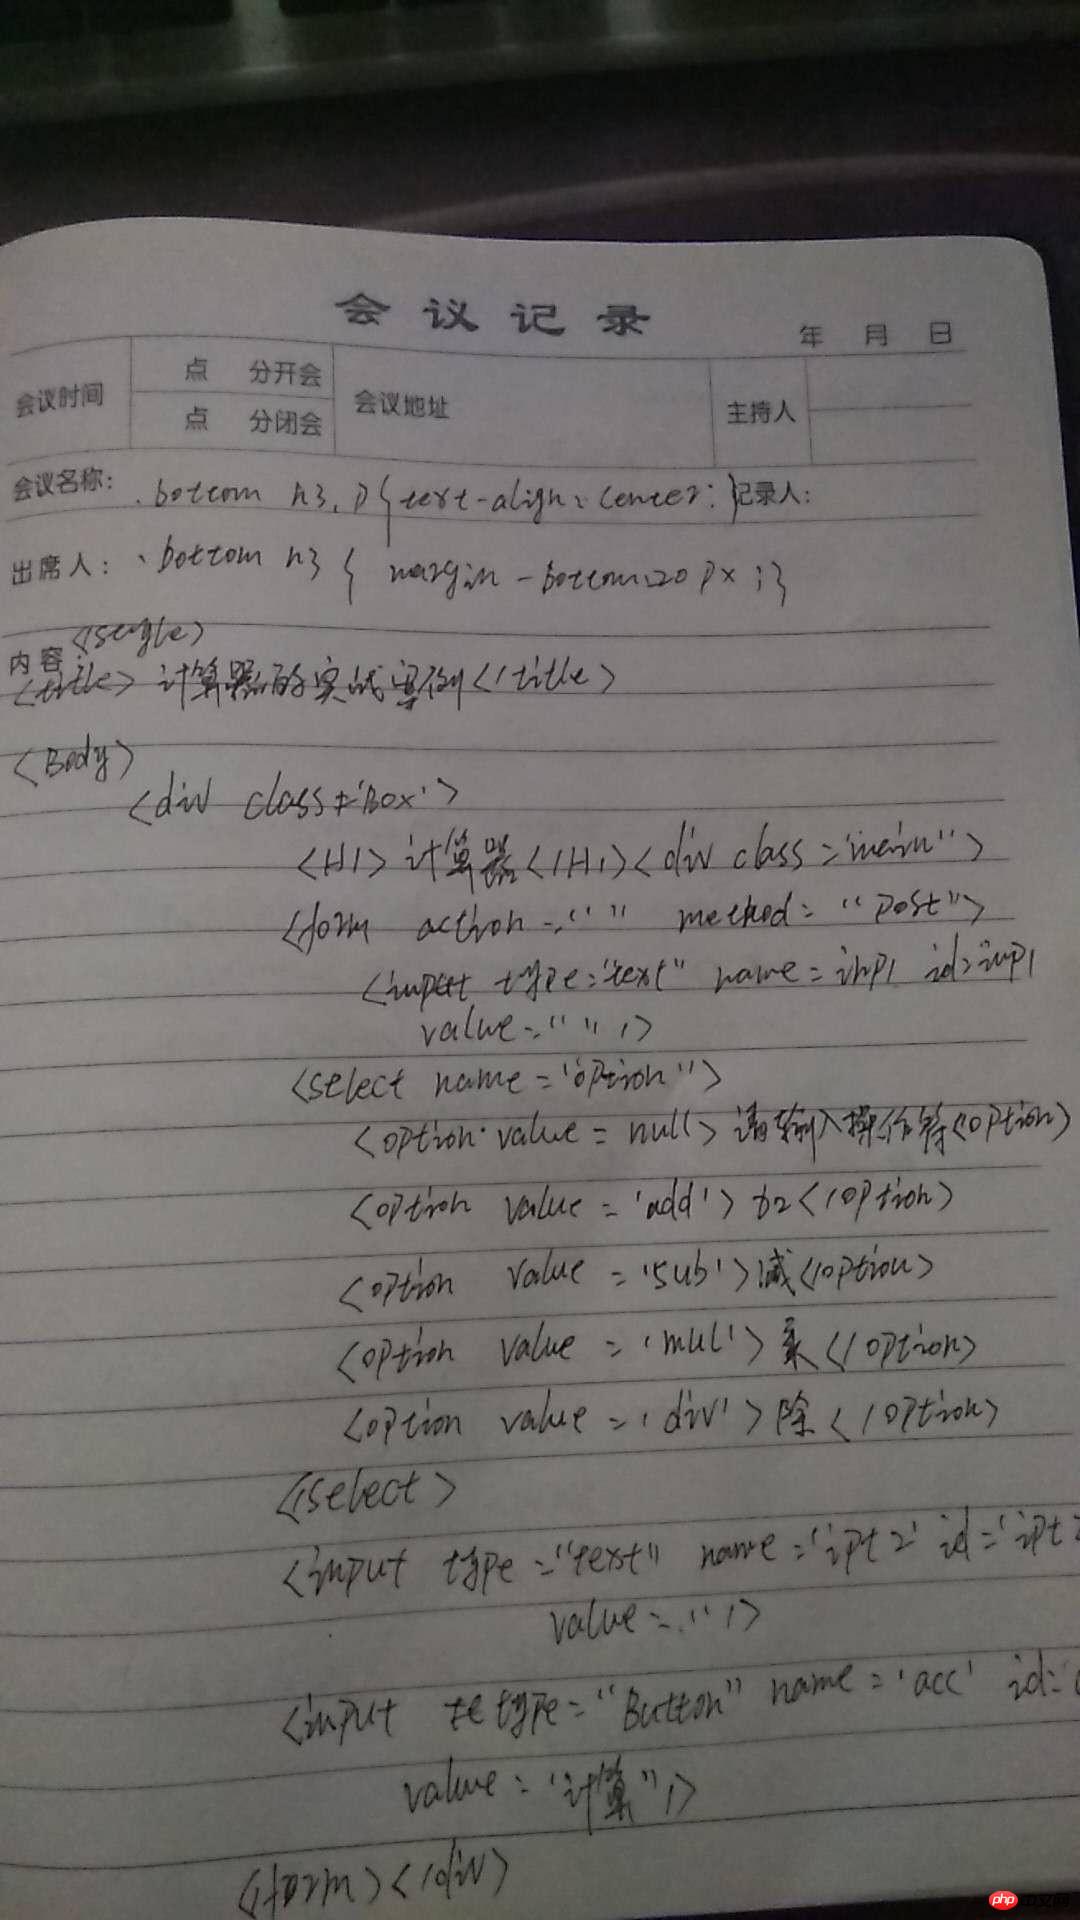 会议记录
年 月 日
会议时间 点 分开会 会议地址 主持人
点 分闭会
会议名称: .bottom h3,p{text-align:center;} 记录人:
出席人: .bottom h3{ margin-bottom:20px;}
内容: </style>
<title>计算器的实战实例</title>
<Body>
<div class='Box'>
<H1>计算器</H1><div class='main">
<form action="" method="post">
<input type="text" name=inp1 id=inp1
value="" />
<select name="option">
<option value=null>请输入操作符</option>
<option value='add'>加</option>
<option value='sub'>减</option>
<option value='mul'>乘</option>
<option value='div'>除</option>
</select>
<input type="text" name='ipt2' id='ipt2
value="" />
<input type="Button" name='acc' id=
value='计算"/>
</form></div>
php